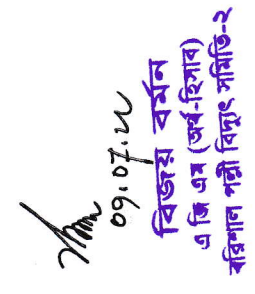 09.07.২২
বিজয় বর্মন
এ জি এম (অর্থ-হিসাব)
বরিশাল পল্লী বিদ্যুৎ সমিতি-২